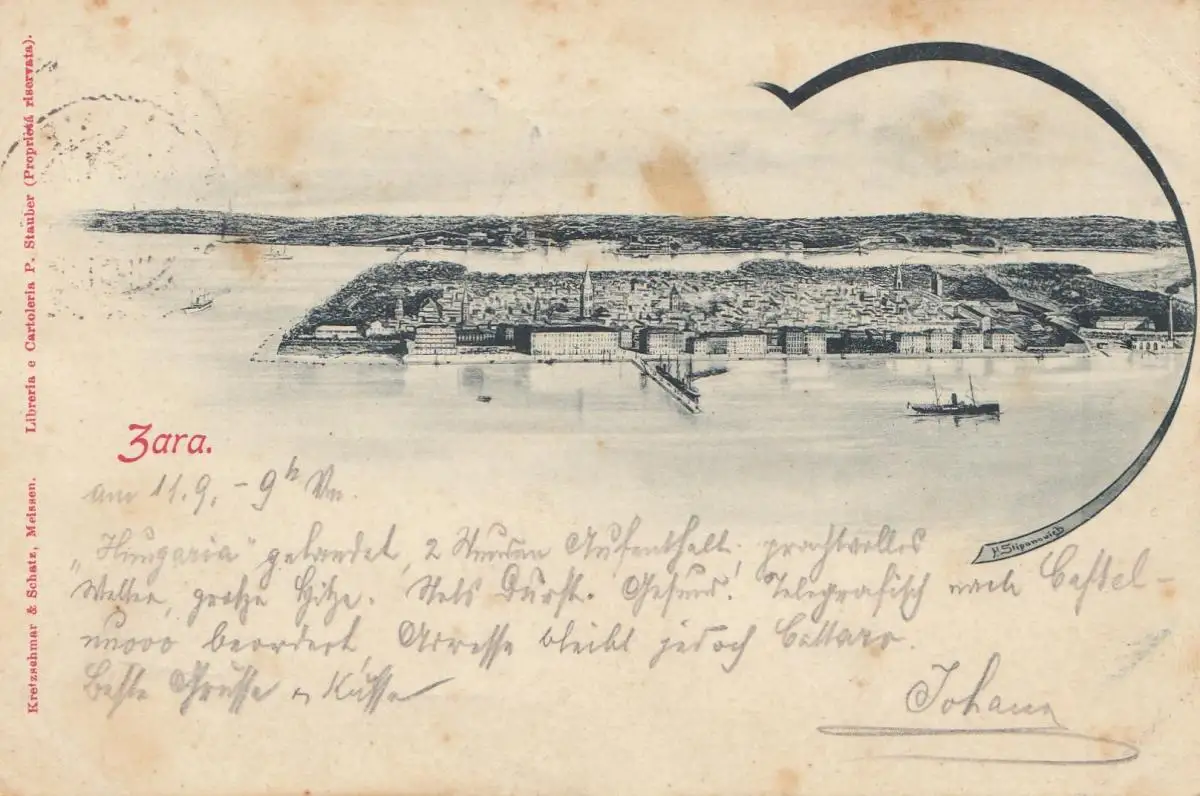 Libreria e Cartoleria P. Stauber (Proprietá riservata).
Kretzschmar & Schatz, Meissen.
Zara.
H. Stipanovich
am 11.9. - 9h Vm.
„Hungaria“ gelandet, 2 Stunden Aufenthalt, prachtvolles
Wetter, große Hitze. Stets Durst. Gesund. Telegrafisch nach Castel-
nuovo beordert, Adresse bleibt jedoch Cattaro.
Beste Grüsse u Küsse
Johann